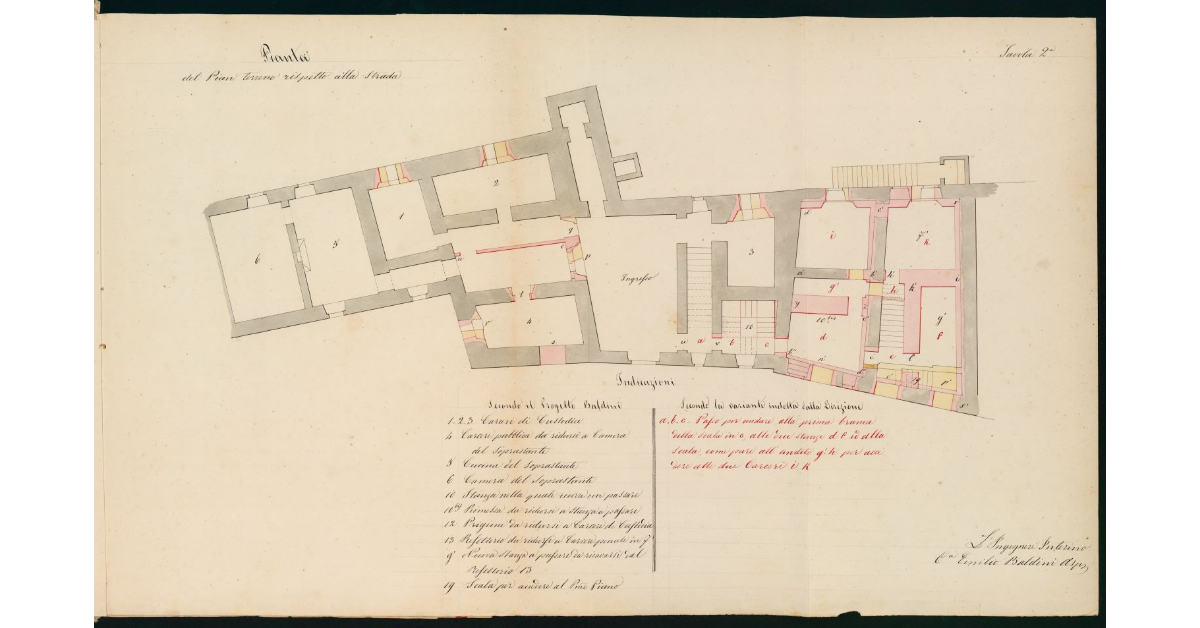 Pianta
del Pian terreno rispetto alla Strada
Tavola 2ª
Ingresso
Indicazioni
Secondo il Progetto Baldini
1. 2. 3 Carceri di Custodia
4 Carcere pubblica da ridursi a Camera
del Soprastante
5 Cucina del Soprastante
6 Camera del Soprastante
10 Stanza nella quale
12 Prigioni da ridursi a Carceri di Custodia
13 Refettorio da ridursi a Carcere penale in
g' Nuova stanza a
Refettorio 13
19 Scala per andare al Pmo Piano
Secondo la variante indotta dalla Direzione
a. b. c. Passo per andare alla prima branca
della scala in e, alle due stanze d f. ed alla
scala, come pure all andito g' h per acce
dere alle due Carceri i K
L'Ingegnere Interino
Emilio Baldini